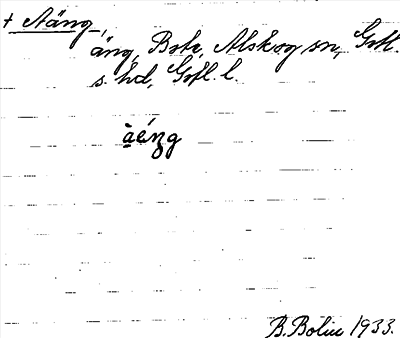 + Aäng,
äng, Bste, Alskog sn, Gotl.
s. hd, Gotl. l.
àéng
B. Bolin 1933.